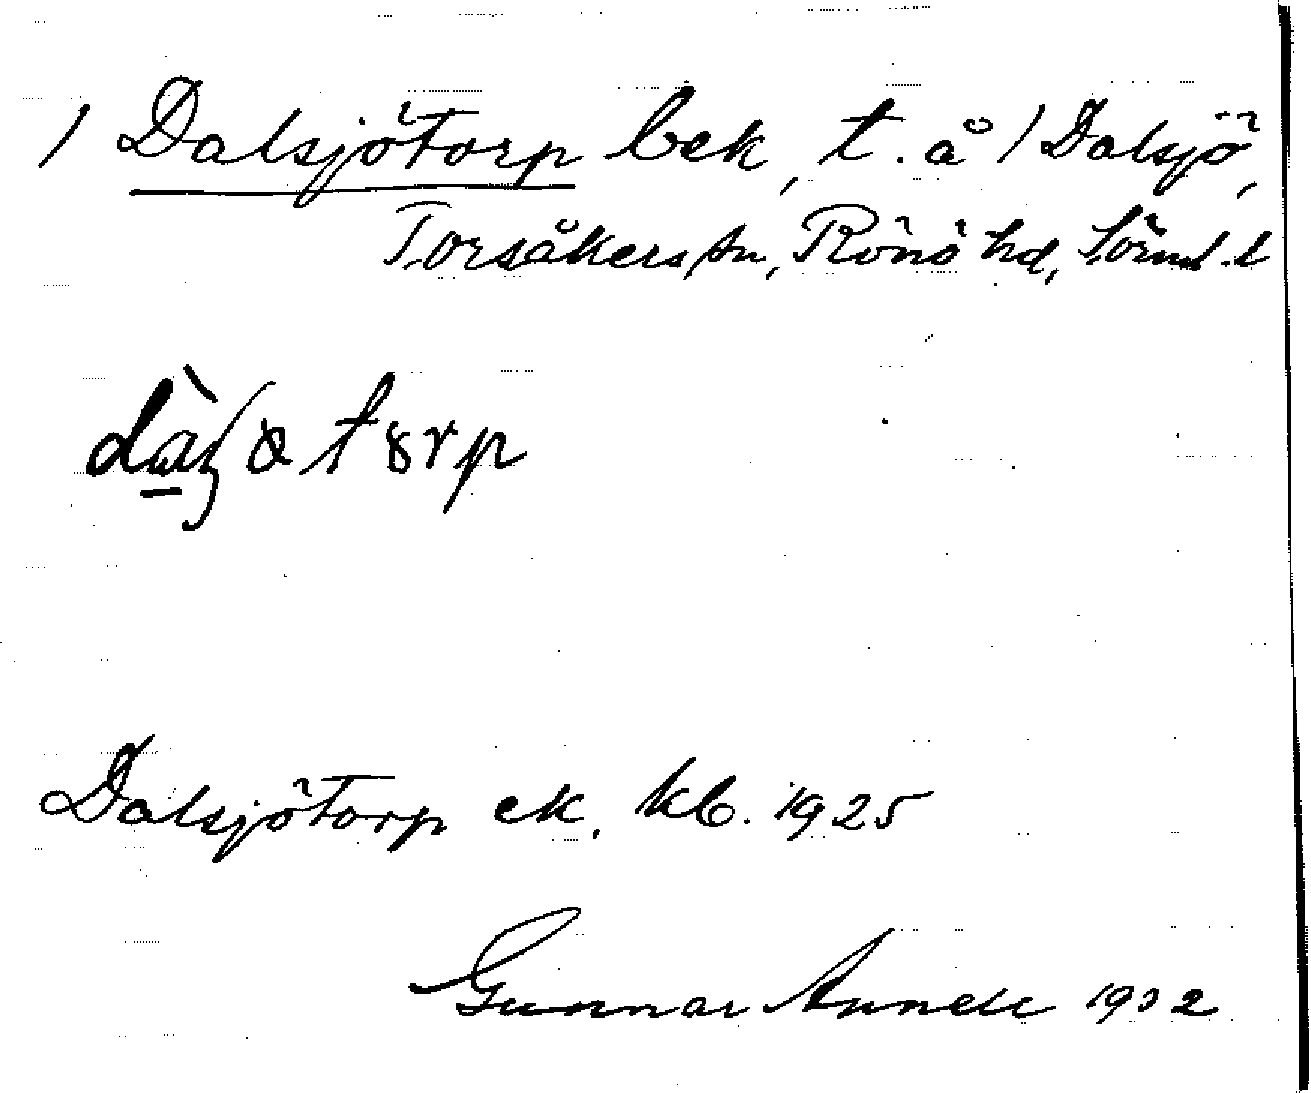 / Dalsjötorp bek, t. å / Dalsjö,
Torsåkers sn, Rönö hd, Sörml. l
Dalsjötorp ek. kb. 1925
Gunnar 1932